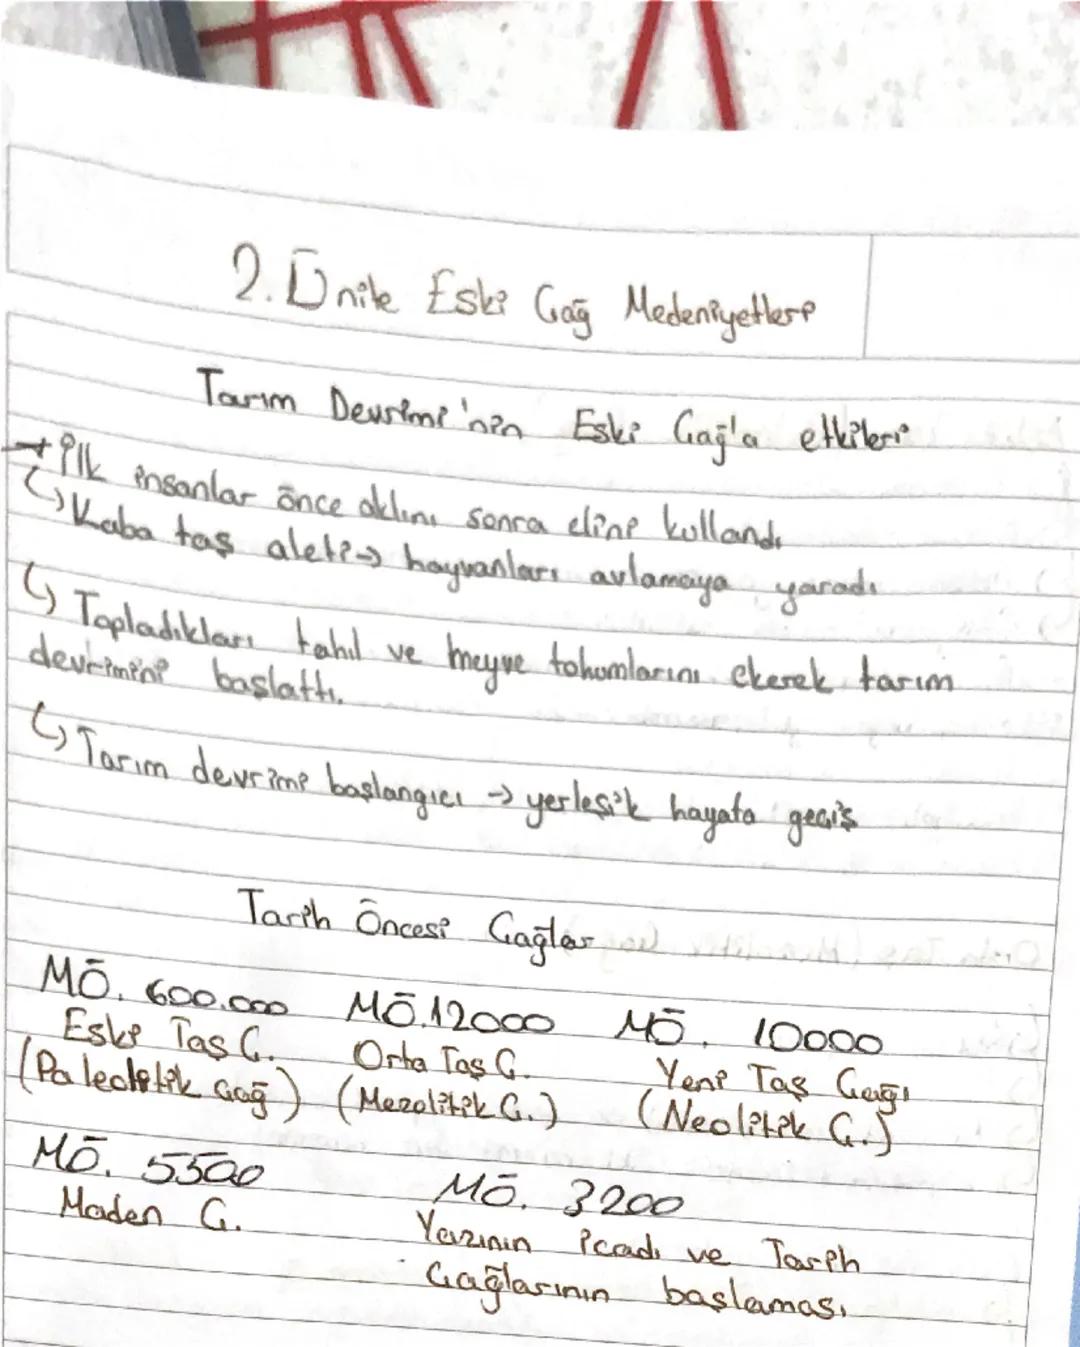 2. Ünite Eski Çağ Medeniyetleri
Tarım Devrimi'nin Eski Çağ'a etkileri
→ İlk insanlar önce aklını sonra elini kullandı
↳ Kaba taş aleti → hayvanları avlamaya yaradı
↳ Topladıkları tahıl ve meyve tohumlarını ekerek tarım
devrimini başlattı.
↳ Tarım devrimi başlangıcı → yerleşik hayata geçiş
Tarih Öncesi Çağlar
MÖ. 600.000 MÖ. 12000 MÖ. 10000
Eski Taş Ç. Orta Taş Ç. Yeni Taş Çağı
(Paleolitik Çağ) (Mezolitik Ç.) (Neolitik Ç.)
MÖ. 5500 MÖ. 3200
Maden Ç. Yazının icadı ve Tarih
Çağlarının başlaması